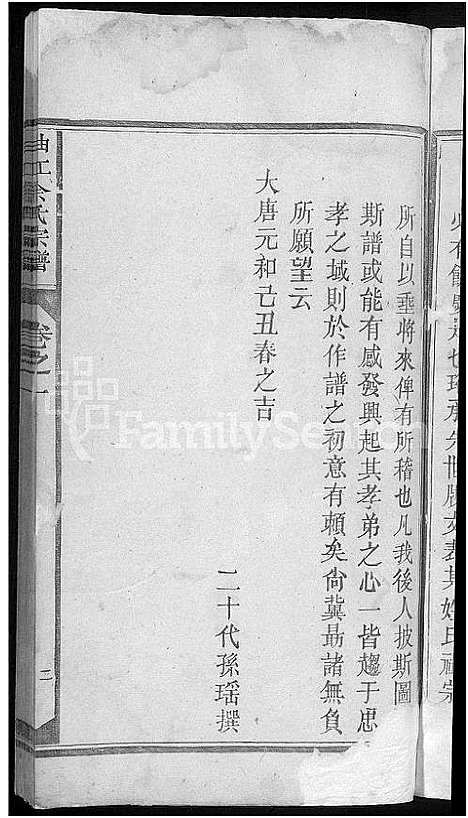 所自以垂將來俾有所稽也凡我後人披斯圖
斯譜或能有感發興起其孝弟之心一皆趨于忠
孝之域則於作譜之初意有賴矣尙冀勗諸無負
所願望云
大唐元和己丑春之吉
二十代孫瑶撰
余氏宗譜
卷之一
二
FamilySearch